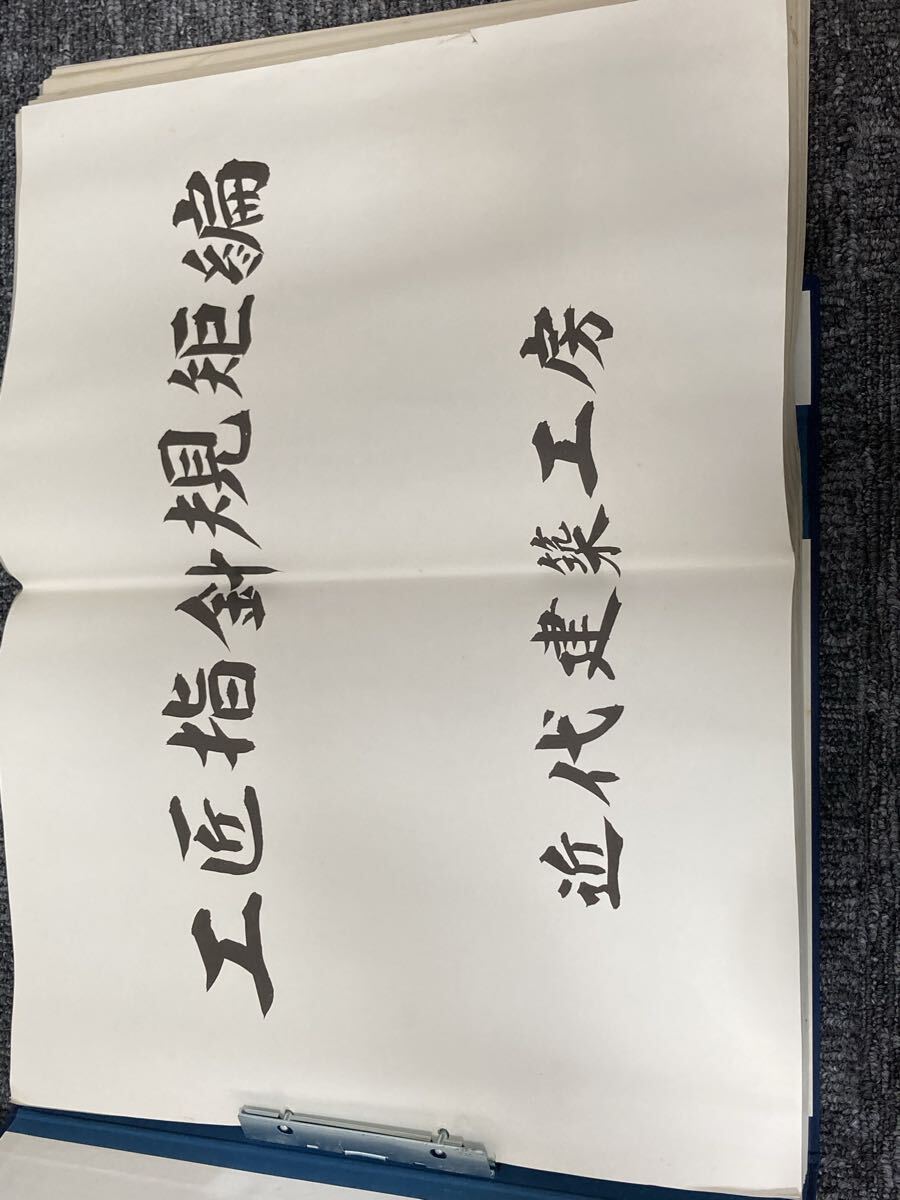 工匠指針規矩編
近代建築工房